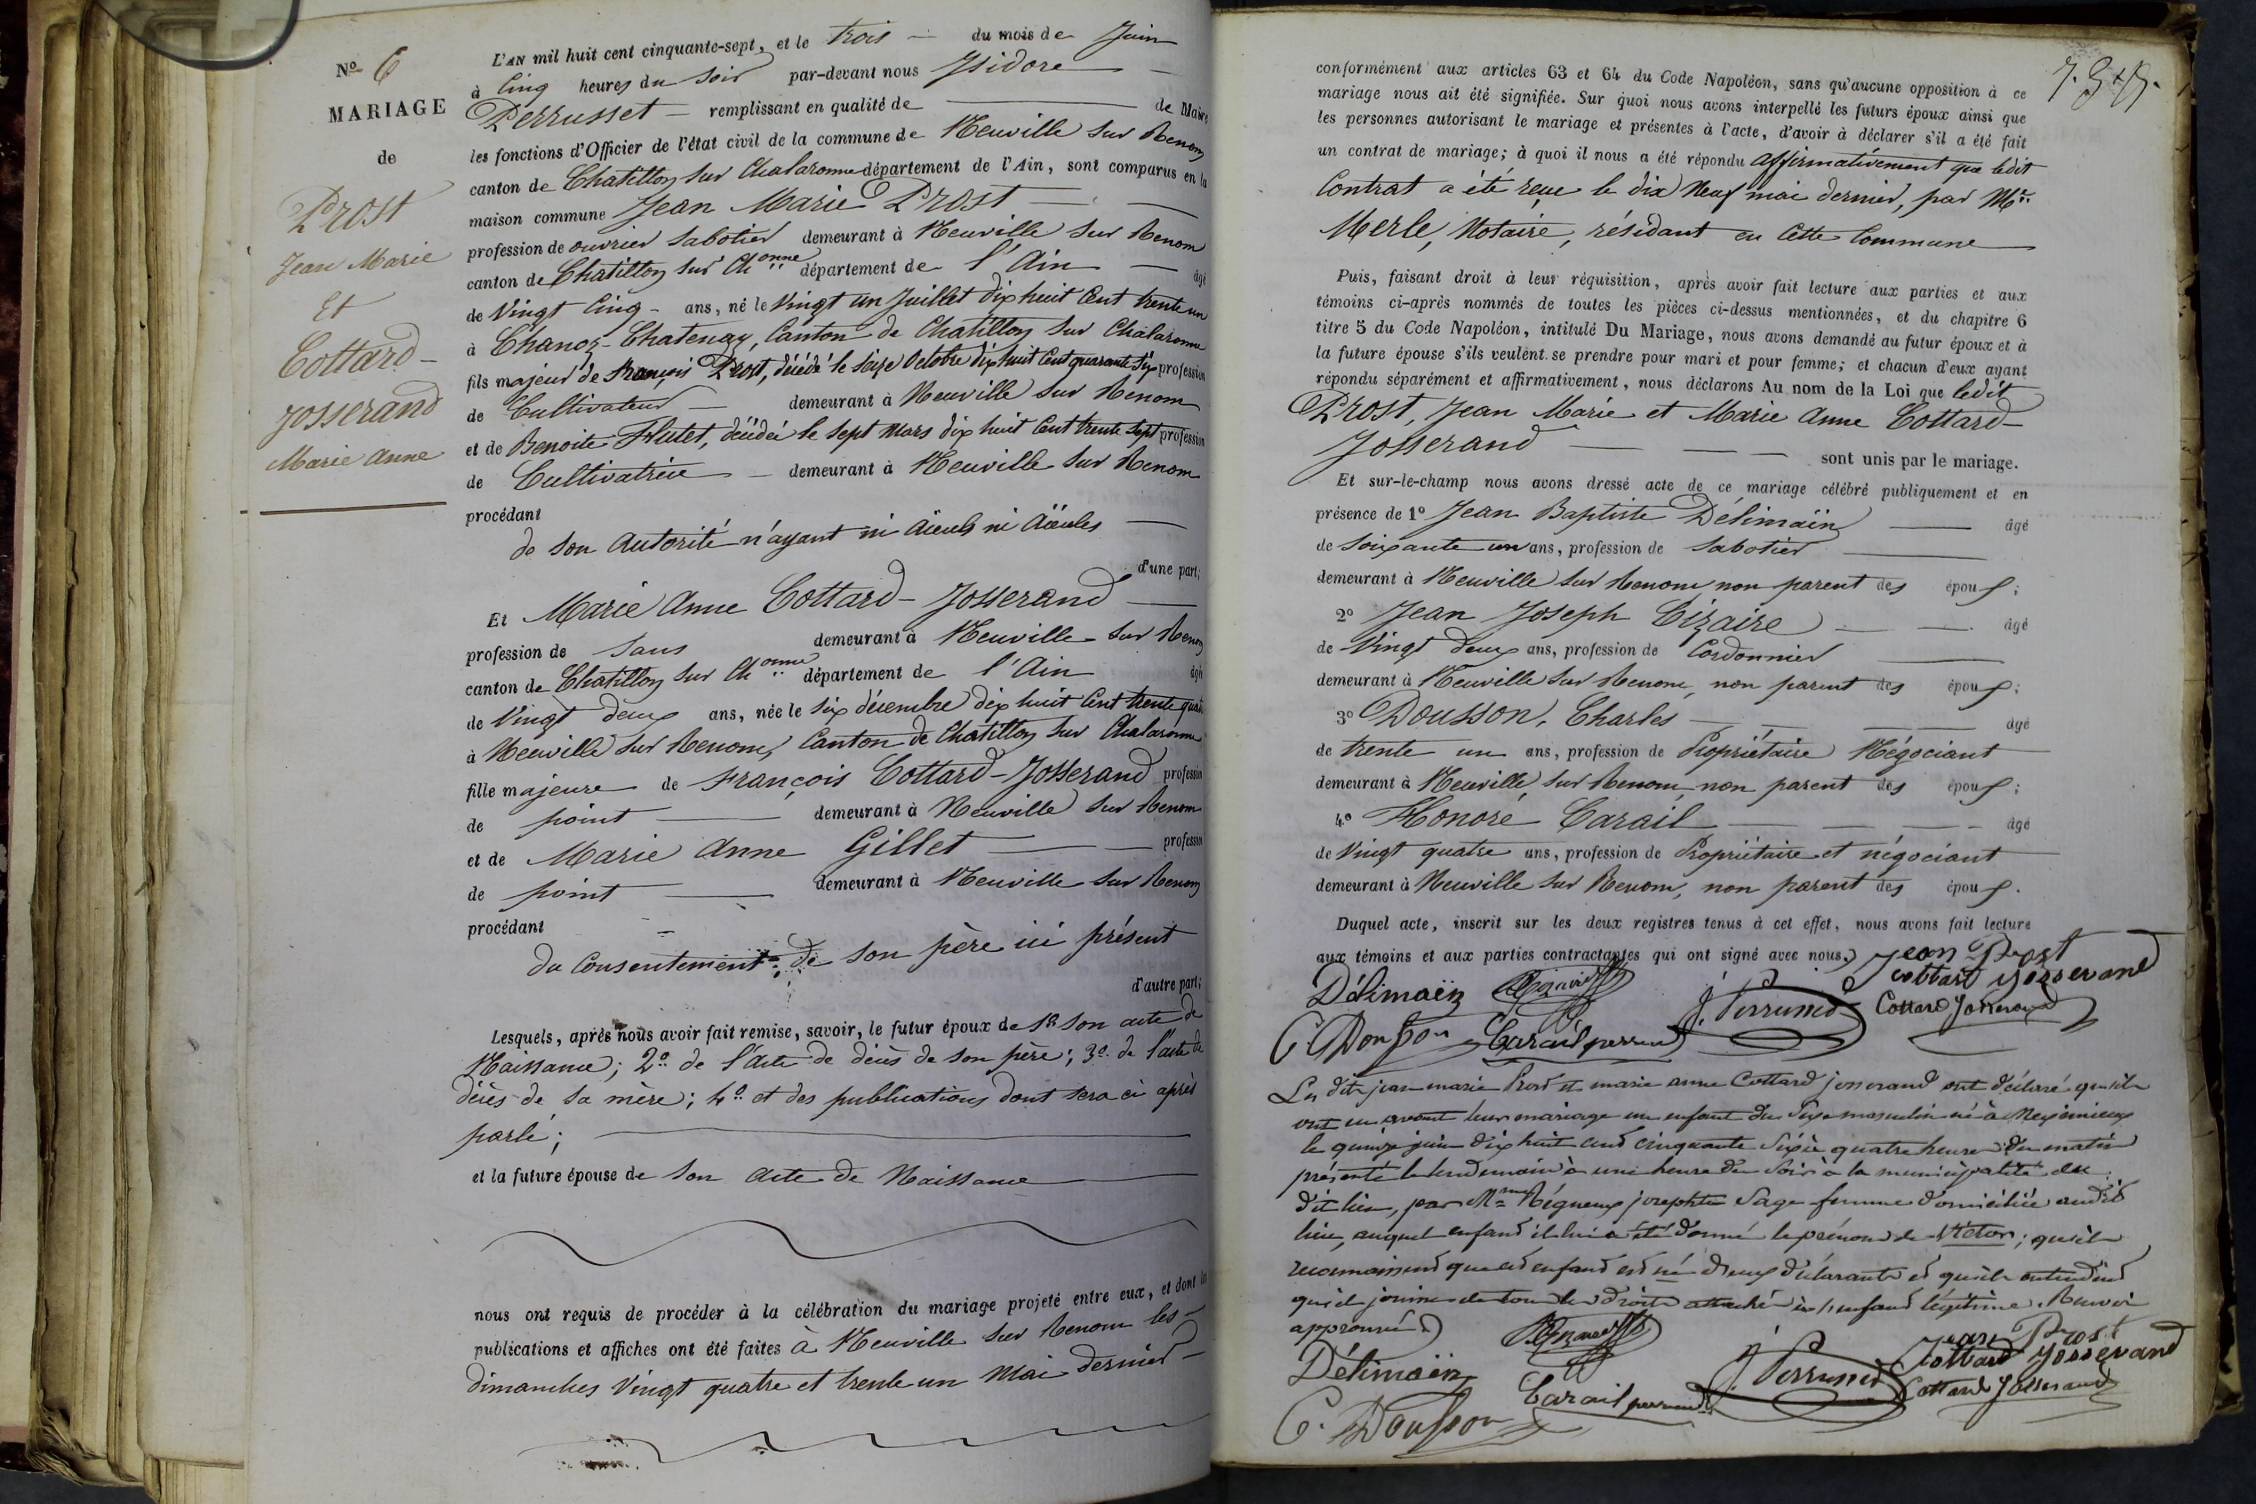 N.o 6
MARIAGE
de
Prost
Jean Marie
Et
Cottard-
Josserand
Marie Anne
L'AN mil huit cent cinquante-sept, et le trois du mois de Juin
à Cinq heures du soir par-devant nous Isidore
Perrusset remplissant en qualité de de Maire
les fonctions d'Officier de l'état civil de la commune de Neuville sur Renom
canton de Chatillon sur Chalaronne département de l'Ain, sont comparus en la
maison commune Jean Marie Prost
profession de ouvrier Sabotier demeurant à Neuville sur Renom
canton de Chatillon sur Ch.onne département de l'Ain âgé
de Vingt Cinq ans, né le Vingt un Juillet dix huit Cent trente un
à Chanoz-Chatenay, Canton de Chatillon sur Chalaronne
fils majeur de François Prost, décédé le seize Octobre dix huit Cent quarante Six profession
de Cultivateur demeurant à Neuville sur Renom
et de Benoite Flutet, décédée le sept Mars dix huit Cent trente Sept profession
de Cultivatrice demeurant à Neuville sur Renom
procédant
de son Autorité n'ayant ni Aïeuls ni Aïeules
d'une part;
Et Marie Anne Cottard-Josserand
profession de Sans demeurant à Neuville sur Renom
canton de Chatillon sur Ch.onne département de l'Ain âgée
de Vingt deux ans, née le Six décembre dix huit Cent trente quatre
à Neuville sur Renom, Canton de Chatillon sur Chalaronne
fille majeure de François Cottard-Josserand profession
de point demeurant à Neuville sur Renom
et de Marie Anne Gillet profession
de point demeurant à Neuville sur Renom
procédant
du Consentement de son père ici présent
d'autre part;
Lesquels, après nous avoir fait remise, savoir, le futur époux de 1o Son acte de
Naissance; 2o de l'Acte de décès de son père; 3o de l'acte de
décès de sa mère; 4o et des publications dont sera ci après
parlé;
et la future épouse de Son Acte de Naissance
nous ont requis de procéder à la célébration du mariage projeté entre eux, et dont les
publications et affiches ont été faites à Neuville sur Renom les
dimanches Vingt quatre et trente un Mai dernier
conformément aux articles 63 et 64 du Code Napoléon, sans qu'aucune opposition à ce
mariage nous ait été signifiée. Sur quoi nous avons interpellé les futurs époux ainsi que
les personnes autorisant le mariage et présentes à l'acte, d'avoir à déclarer s'il a été fait
un contrat de mariage; à quoi il nous a été répondu affirmativement que ledit
Contrat a été reçu le dix Neuf mai dernier, par Mr.
Merle, Notaire, résidant en Cette Commune
Puis, faisant droit à leur réquisition, après avoir fait lecture aux parties et aux
témoins ci-après nommés de toutes les pièces ci-dessus mentionnées, et du chapitre 6
titre 5 du Code Napoléon, intitulé Du Mariage, nous avons demandé au futur époux et à
la future épouse s'ils veulent se prendre pour mari et pour femme; et chacun d'eux ayant
répondu séparément et affirmativement, nous déclarons Au nom de la Loi que ledit
Prost, Jean Marie et Marie Anne Cottard-
Josserand sont unis par le mariage.
Et sur-le-champ nous avons dressé acte de ce mariage célébré publiquement et en
présence de 1o Jean Baptiste Délimaïn âgé
de Soixante un ans, profession de Sabotier
demeurant à Neuville sur Renom, non parent des époux;
2o Jean Joseph Cizaire âgé
de Vingt deux ans, profession de Cordonnier
demeurant à Neuville sur Renom, non parent des époux;
3o Dousson, Charles âgé
de trente un ans, profession de Propriétaire Négociant
demeurant à Neuville sur Renom, non parent des époux;
4o Honoré Carail âgé
de Vingt quatre ans, profession de Propriétaire et négociant
demeurant à Neuville sur Renom, non parent des époux.
Duquel acte, inscrit sur les deux registres tenus à cet effet, nous avons fait lecture
aux témoins et aux parties contractantes qui ont signé avec nous. Jean Prost
Délimaïn cottard Josserand
J. Perrusset Cottard Josserand
C. Dousson Carail
Les dits jean marie Prost et marie anne Cottard josserand ont déclaré qu'ils
ont eu avant leur mariage un enfant du Sexe masculin né à Meximieux
le quinze juin dix huit cent cinquante six à quatre heures du matin
présenté le lendemain à une heure du Soir à la municipalité du
dit lieu, par Mme Régneux josephte Sage femme domiciliée audit
lieu, auquel enfant il lui a été donné le prénom de Victor; qu'ils
reconnaissent que cet enfant est né d'eux déclarants et qu'ils entendent
qu'il jouisse de tous les droits attachés à l'enfant légitime. Renvoi
approuvé.
Jean Prost
Délimaïn cottard Josserand
J. Perrusset Cottard Josserand
Carail
C. Dousson